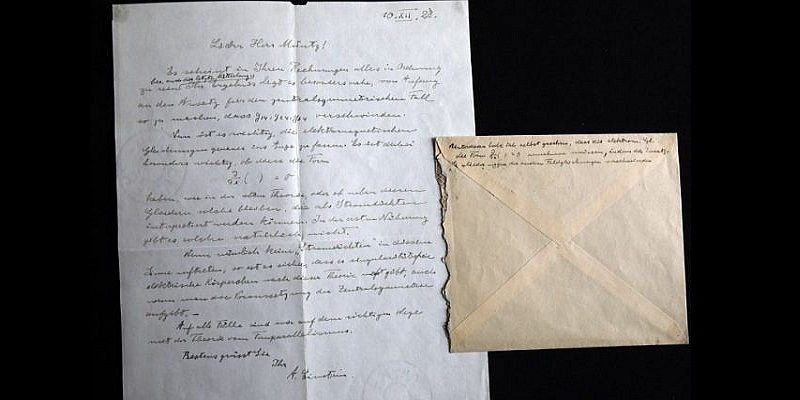 10.XII.28.
Lieber Herr Müntz!
Es scheint in Ihren Rechnungen alles in Ordnung
zu sein. Ihr Ergebnis legt es besonders nahe, von Anfang
an den Ansatz für den zentralsymmetrischen Fall
so zu machen, dass g14, g24, g34 verschwinden.
Nun ist es wichtig, die elektromagnetischen
Gleichungen genauer ins Auge zu fassen. Es ist dabei
besonders wichtig, ob diese die Form
( ) = 0
haben, wie in der alten Theorie, oder ob neben diesen
Gliedern solche bleiben, die als Stromdichten
interpretiert werden können. In der ersten Näherung
gibt es solche natürlich nicht.
Wenn nämlich keine "Stromdichten" in diesem
Sinne auftreten, so ist es sicher, dass es singularitätsfreie
elektrische Körperchen nach dieser Theorie nicht gibt, auch
wenn man die Voraussetzung der Zentralsymmetrie
aufgibt. —
Auf alle Fälle sind wir auf dem richtigen Wege
mit der Theorie vom Fernparallelismus.
Bestens grüsst Sie
Ihr
A. Einstein.
habe ich selbst gesehen, dass die elektrom. Gl.
die Form ( ) = 0 annehmen müssen, indem die
Glieder wegen der anderen Feldgleichungen verschwinden